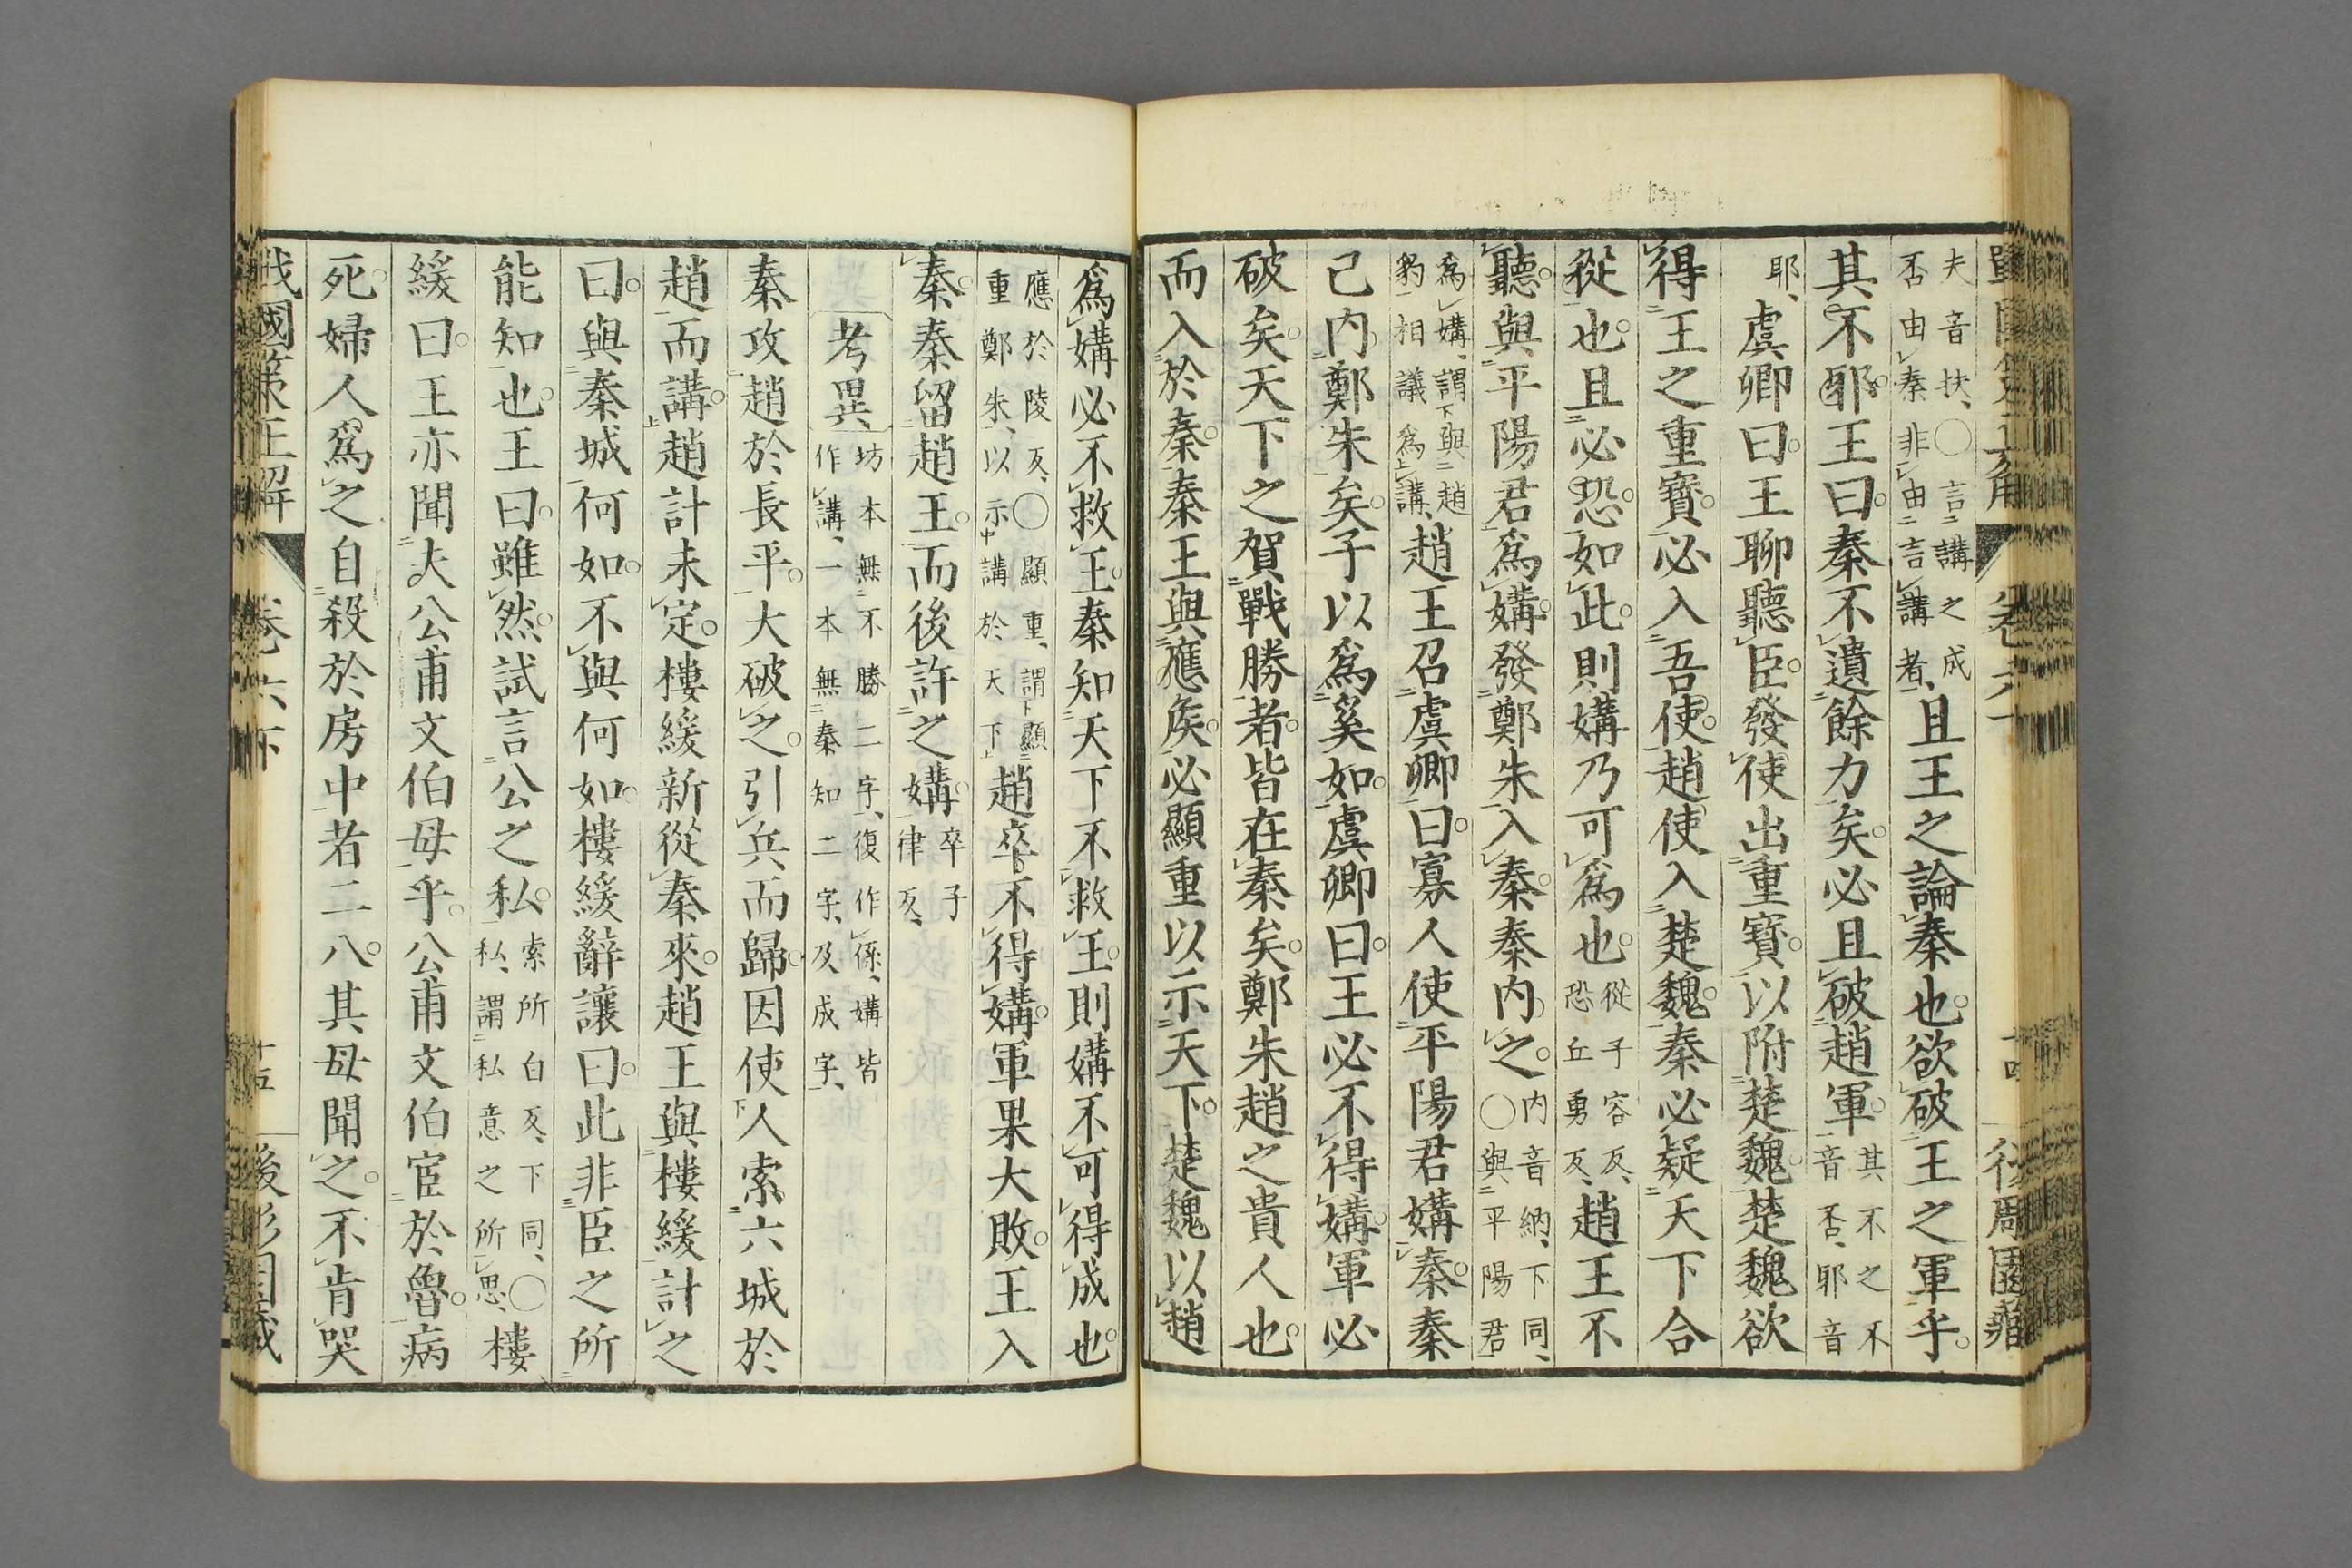 夫音扶、○言講之成
否由秦非由言講者、且王之論秦也。欲破王之軍乎。
其不邪。王曰。秦不遺餘力矣。必且破趙軍。其不之不
音否、邪音
耶、虞卿曰。王聊聽臣。發使出重寶。以附楚魏。楚魏欲
得王之重寶。必入吾使。趙使入楚魏。秦必疑天下合
從也。且必恐。如此。則媾乃可爲也。從子容反、
恐丘勇反、趙王不
聽。與平陽君爲媾。發鄭朱入秦。秦內之。內音納、下同、
○與平陽君
爲媾、謂與趙
豹相議爲講、趙王召虞卿曰。寡人使平陽君媾秦。秦
已內鄭朱矣。子以爲奚如。虞卿曰。王必不得媾。軍必
破矣。天下之賀戰勝者。皆在秦矣。鄭朱趙之貴人也。
而入於秦。秦王與應侯。必顯重以示天下。楚魏以趙
爲媾必不救王。秦知天下不救王。則媾不可得成也。
應於陵反、○顯重、謂顯
重鄭朱、以示講於天下趙卒不得媾。軍果大敗。王入
秦。秦留趙王。而後許之媾。卒子
律反、
考異
坊本無不勝二字、復作係、媾皆
作講、一本無秦知二字、及成字、
秦攻趙於長平。大破之。引兵而歸。因使人索六城於
趙而講。趙計未定。樓緩新從秦來。趙王與樓緩計之
曰。與秦城何如。不與何如。樓緩辭讓曰。此非臣之所
能知也。王曰。雖然。試言公之私。索所白反、下同、○
私、謂私意之所思、樓
緩曰。王亦聞夫公甫文伯母乎。公甫文伯宦於魯。病
死。婦人爲之自殺於房中者二八。其母聞之。不肯哭
戰國策正解
卷六下
十五